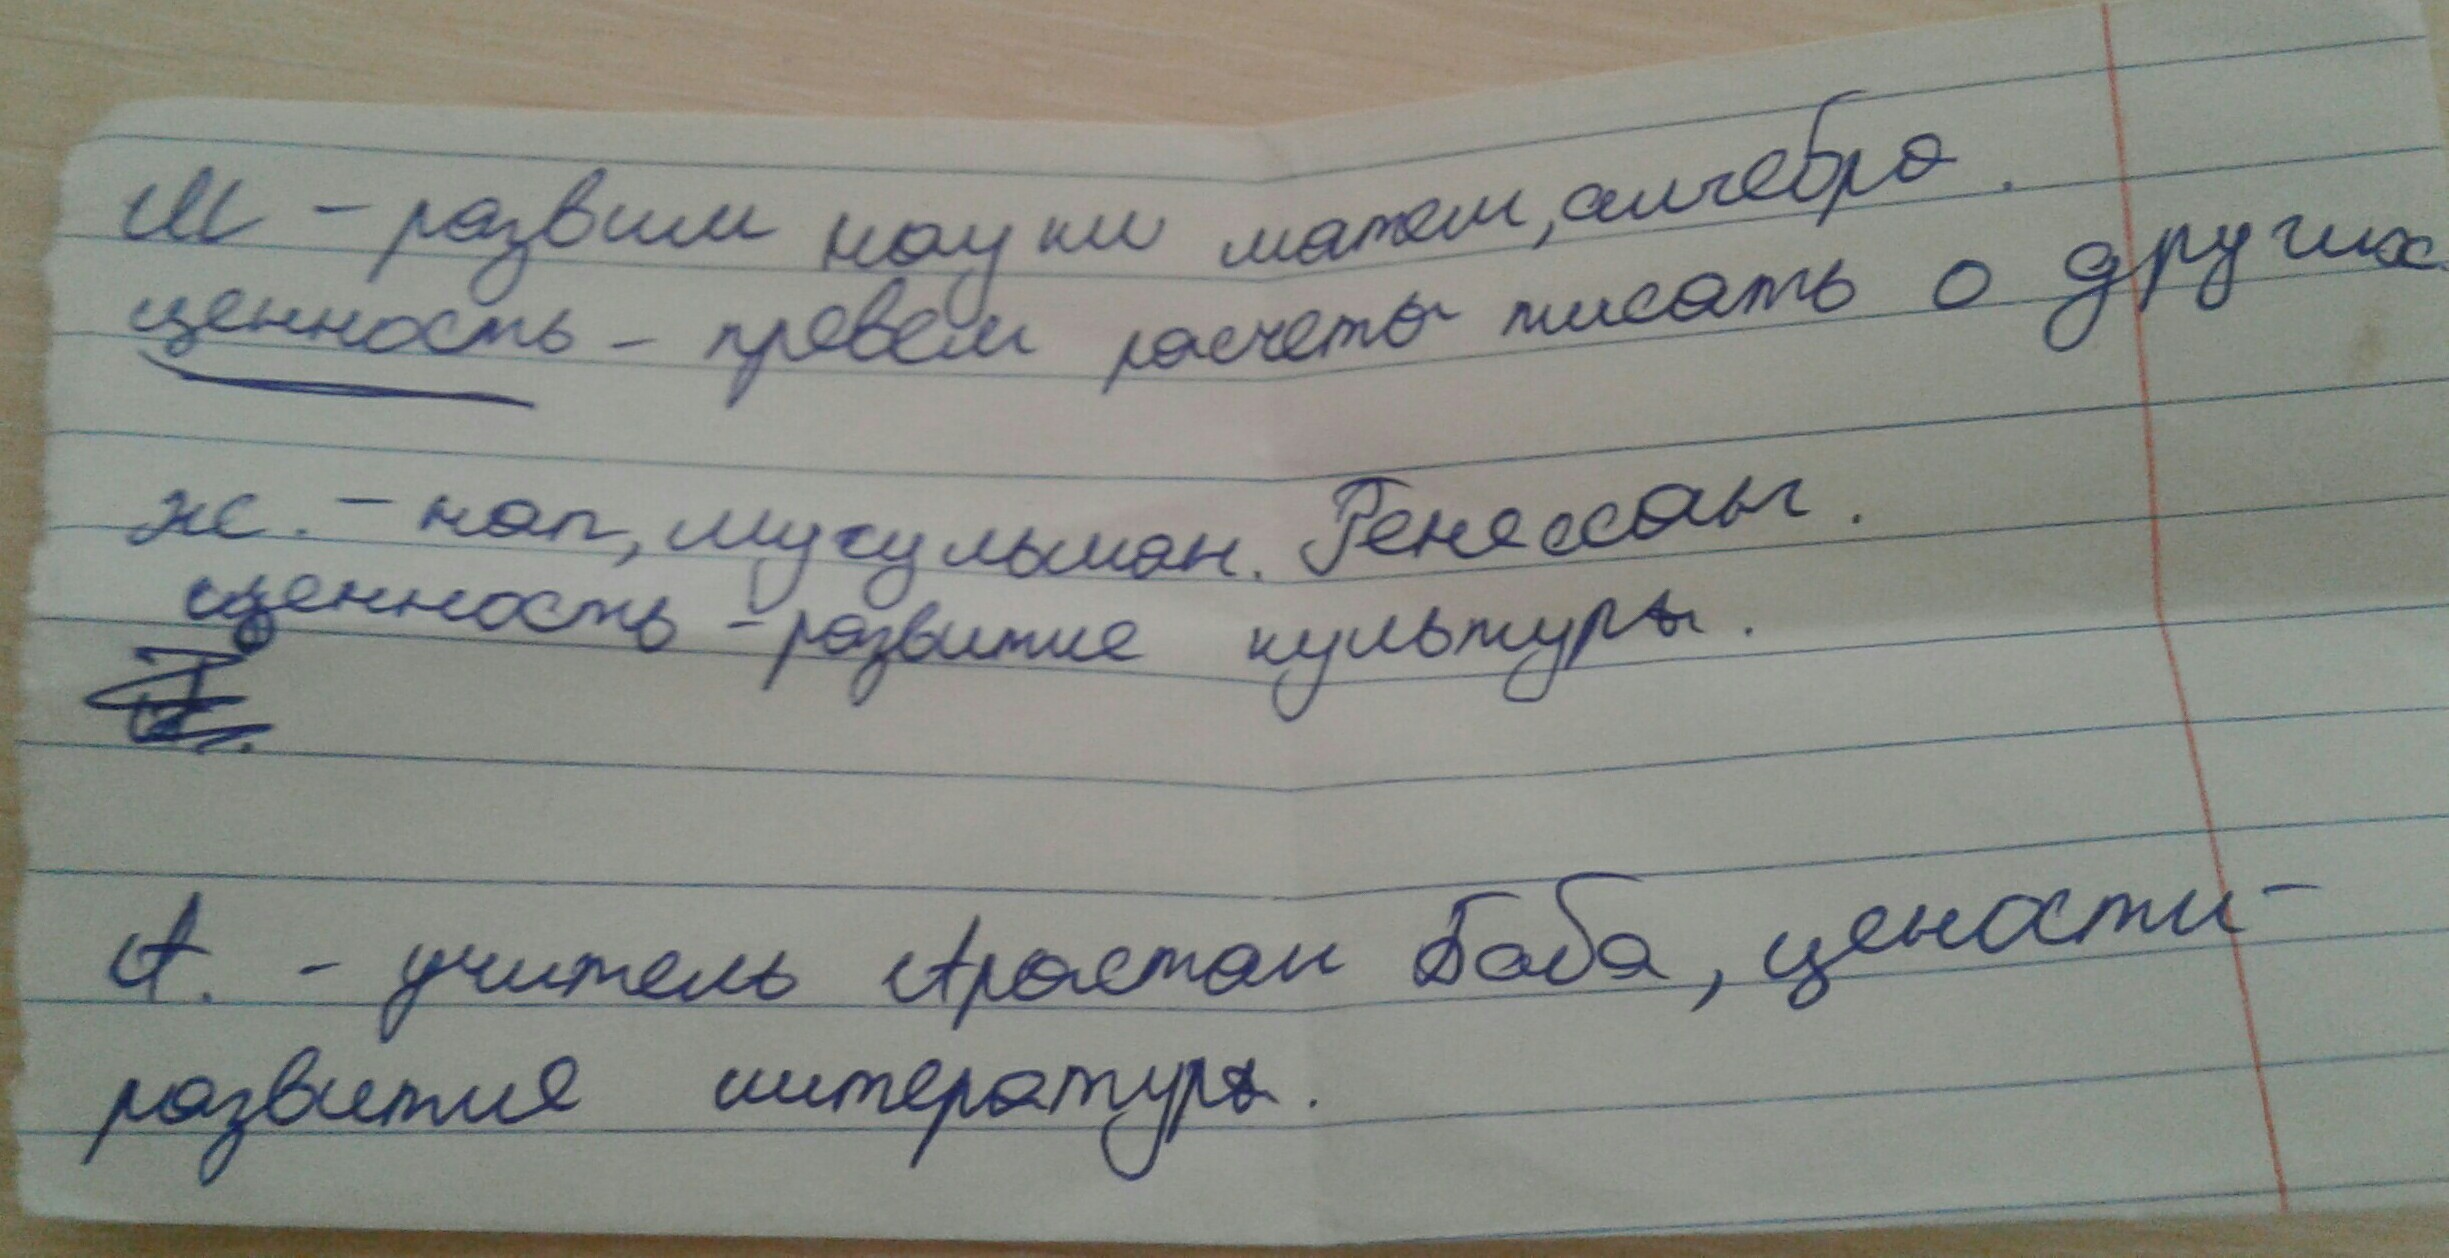 Ш - развил науки матем, алгебра.
ценность - превел расчеты писать о других
ж. - нап, мусульман. Ренессанс.
ценность - развитие культуры.
А. - учитель Арыстан Баба, цености -
развитие литературы.